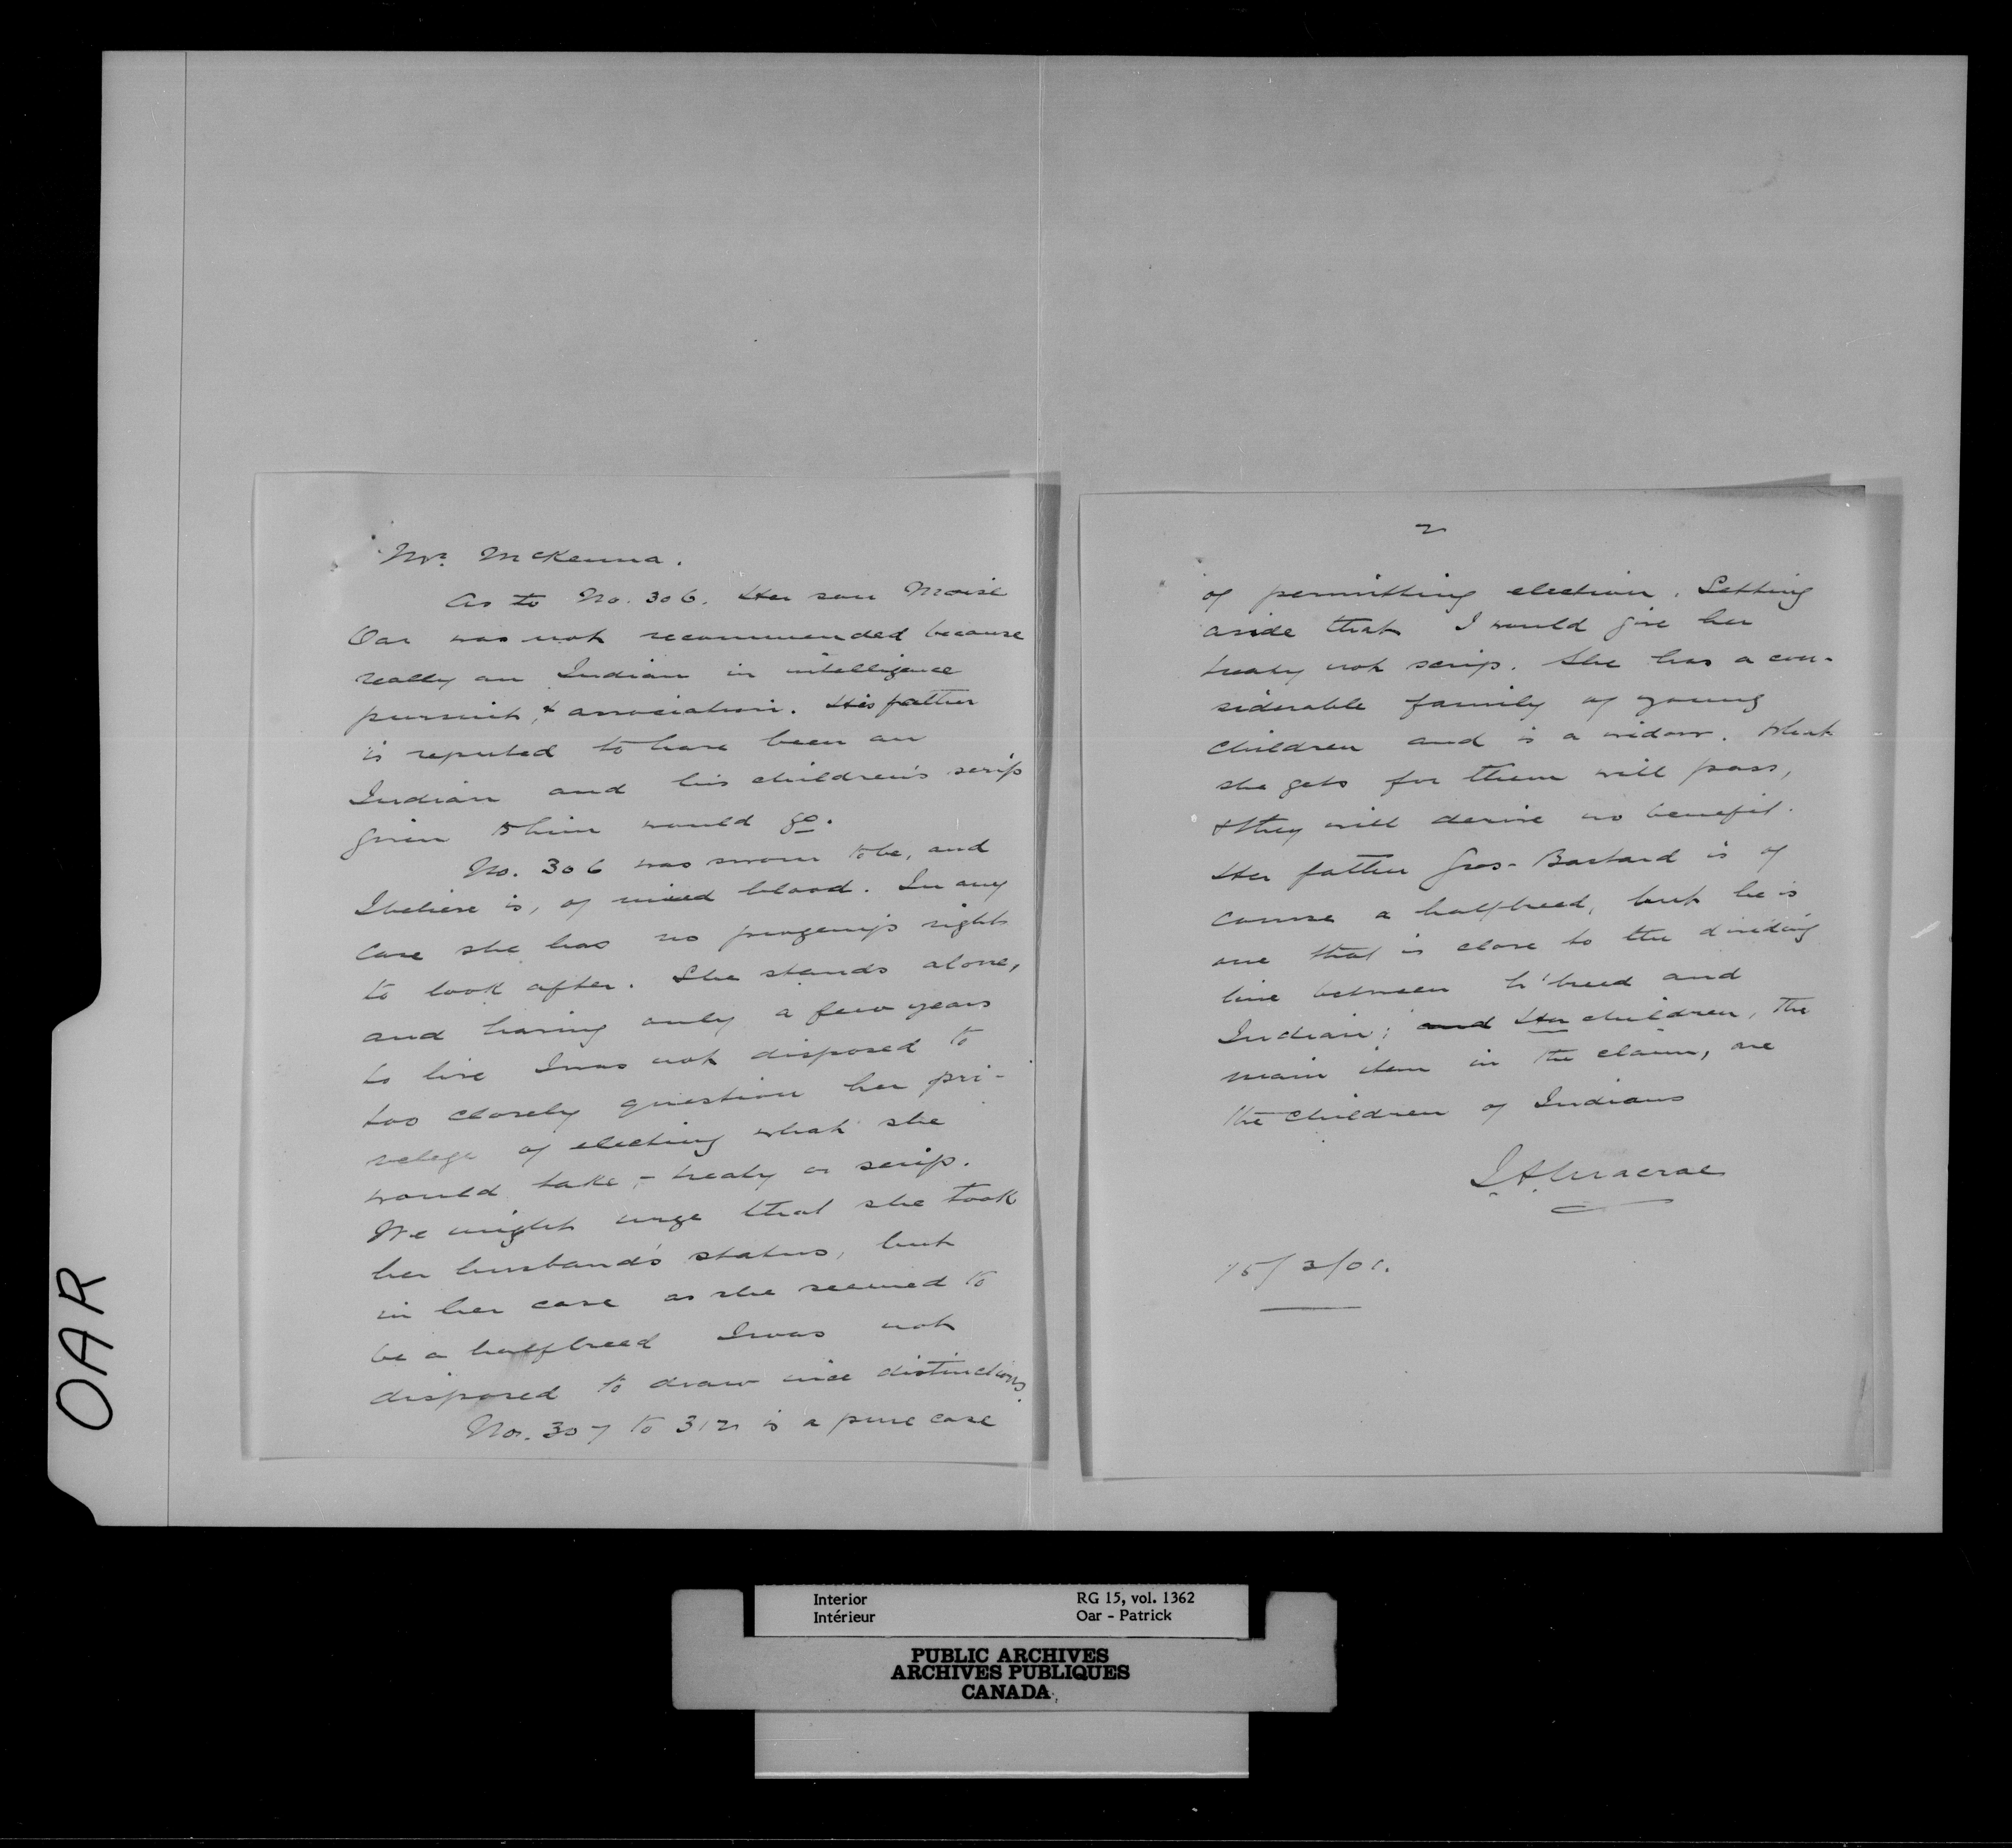 Mr. McKenna.
As to No. 306. Her son Moise
Oar was not recommended because
really an Indian in intelligence
pursuit, & association. His father
is reputed to have been an
Indian and his children's scrip
given to him would go.
No. 306 was sworn to be, and
I believe is, of mixed blood. In any
case she has no progeny's rights
to look after. She stands alone,
and having only a few years
to live I was not disposed to
too closely question her pri-
velege of electing what she
would take, - treaty or scrip.
We might urge that she took
her husband's status, but
in her case as she seemed to
be a halfbreed I was not
disposed to draw nice distinctions.
No. 307 to 312 is a pure case
2
of permitting election. Setting
aside that I would give her
treaty not scrip. She has a con-
siderable family of young
children and is a widow. What
she gets for them will pass,
& they will derive no benefit.
Her father Gros-Bastard is of
course a halfbreed, but he is
one that is close to the dividing
line between h'breed and
Indian; and Her children, the
main item in the claim, are
the children of Indians
J.A. Macrae
15/3/01.
OAR
Interior
Intérieur
RG 15, vol. 1362
Oar - Patrick
PUBLIC ARCHIVES
ARCHIVES PUBLIQUES
CANADA